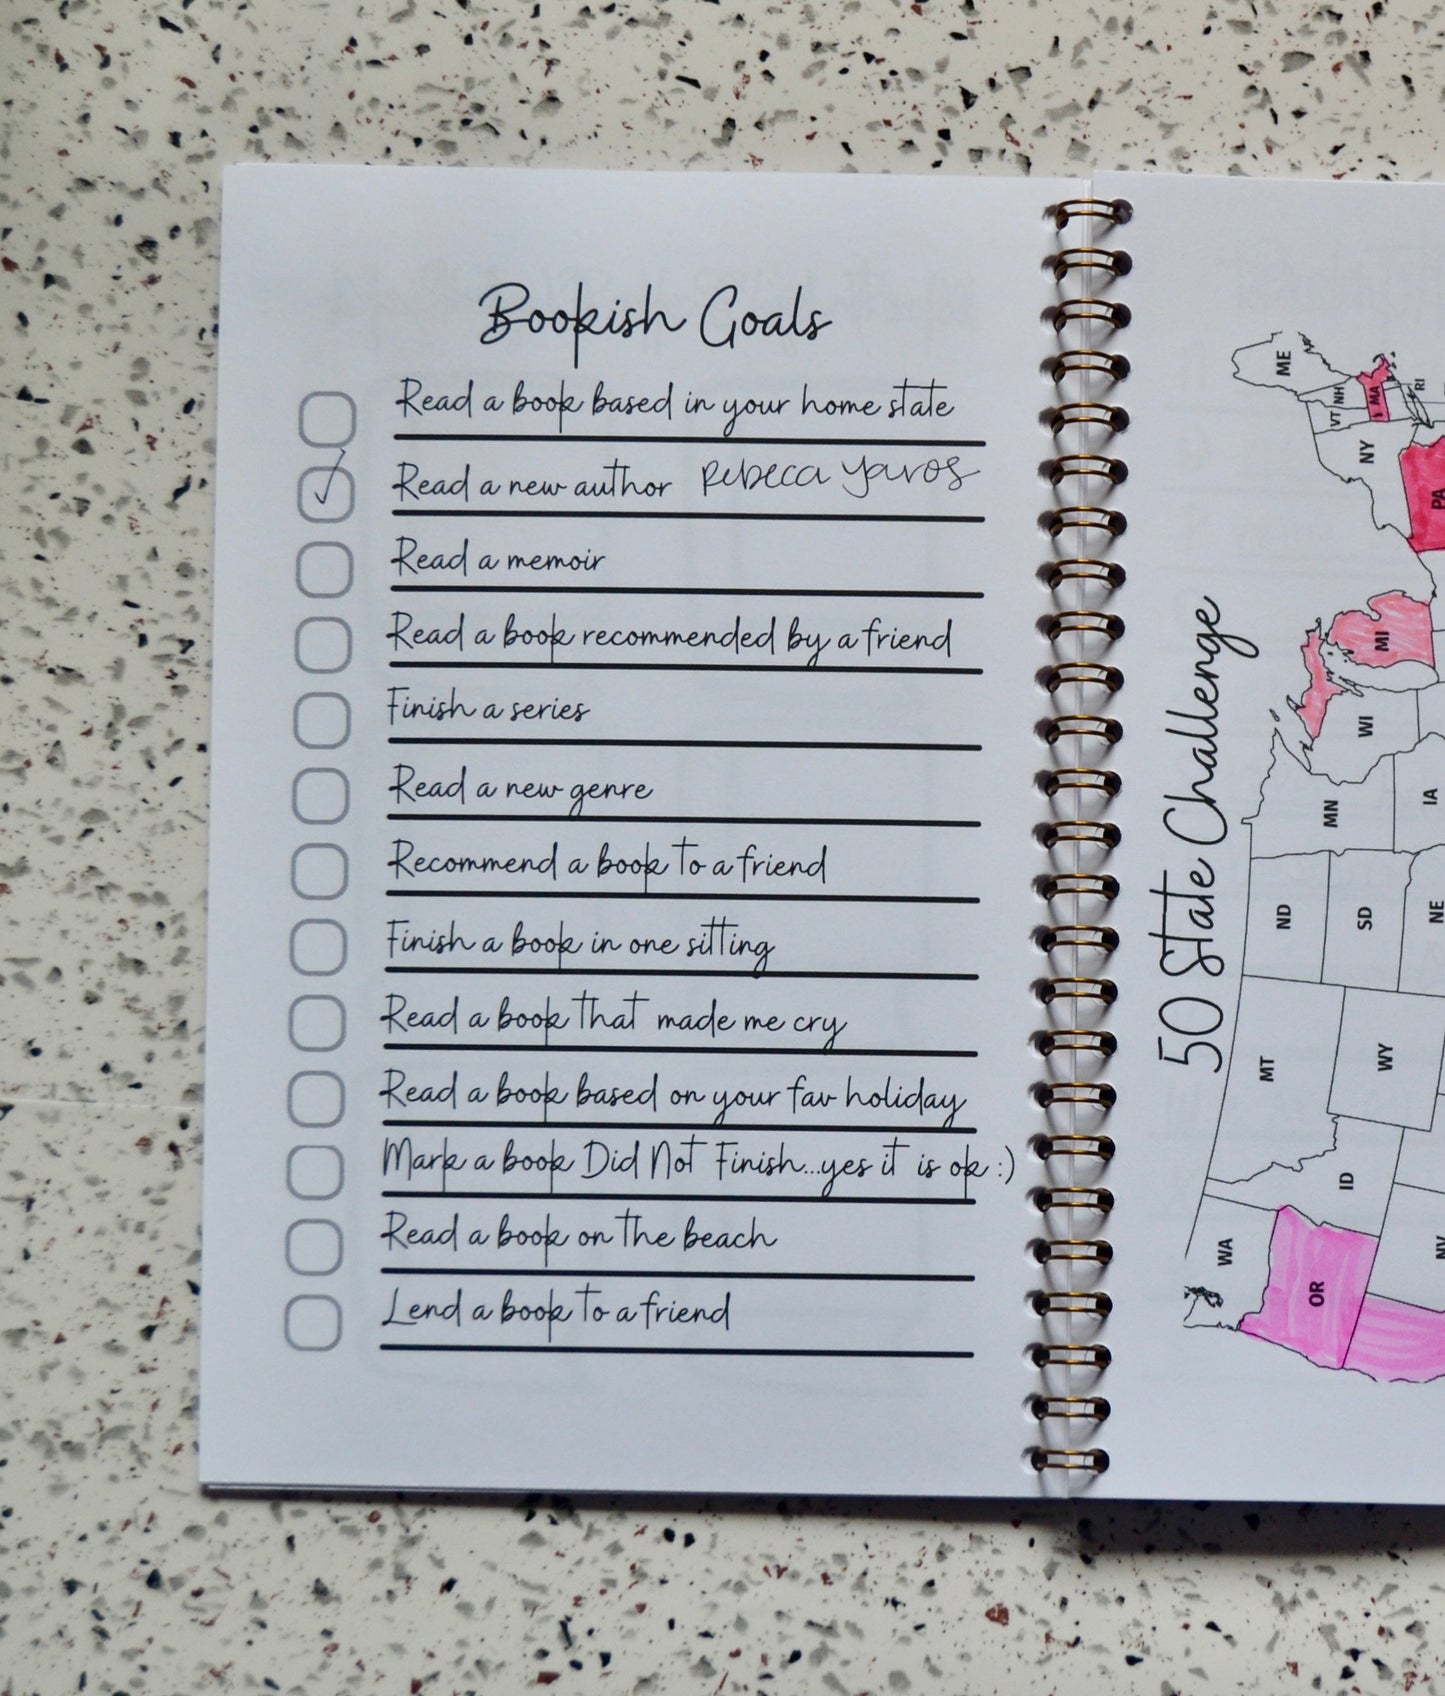 Bookish Goals
Read a book based in your home state
Read a new author Rebecca Yaros
Read a memoir
Read a book recommended by a friend
Finish a series
Read a new genre
Recommend a book to a friend
Finish a book in one sitting
Read a book that made me cry
Read a book based on your fav holiday
Mark a book Did Not Finish...yes it is ok :)
Read a book on the beach
Lend a book to a friend
50 State Challenge
ME
VT
NH
MA
RI
NY
PA
MI
WI
MN
IA
ND
SD
NE
MT
WY
ID
WA
OR
NV